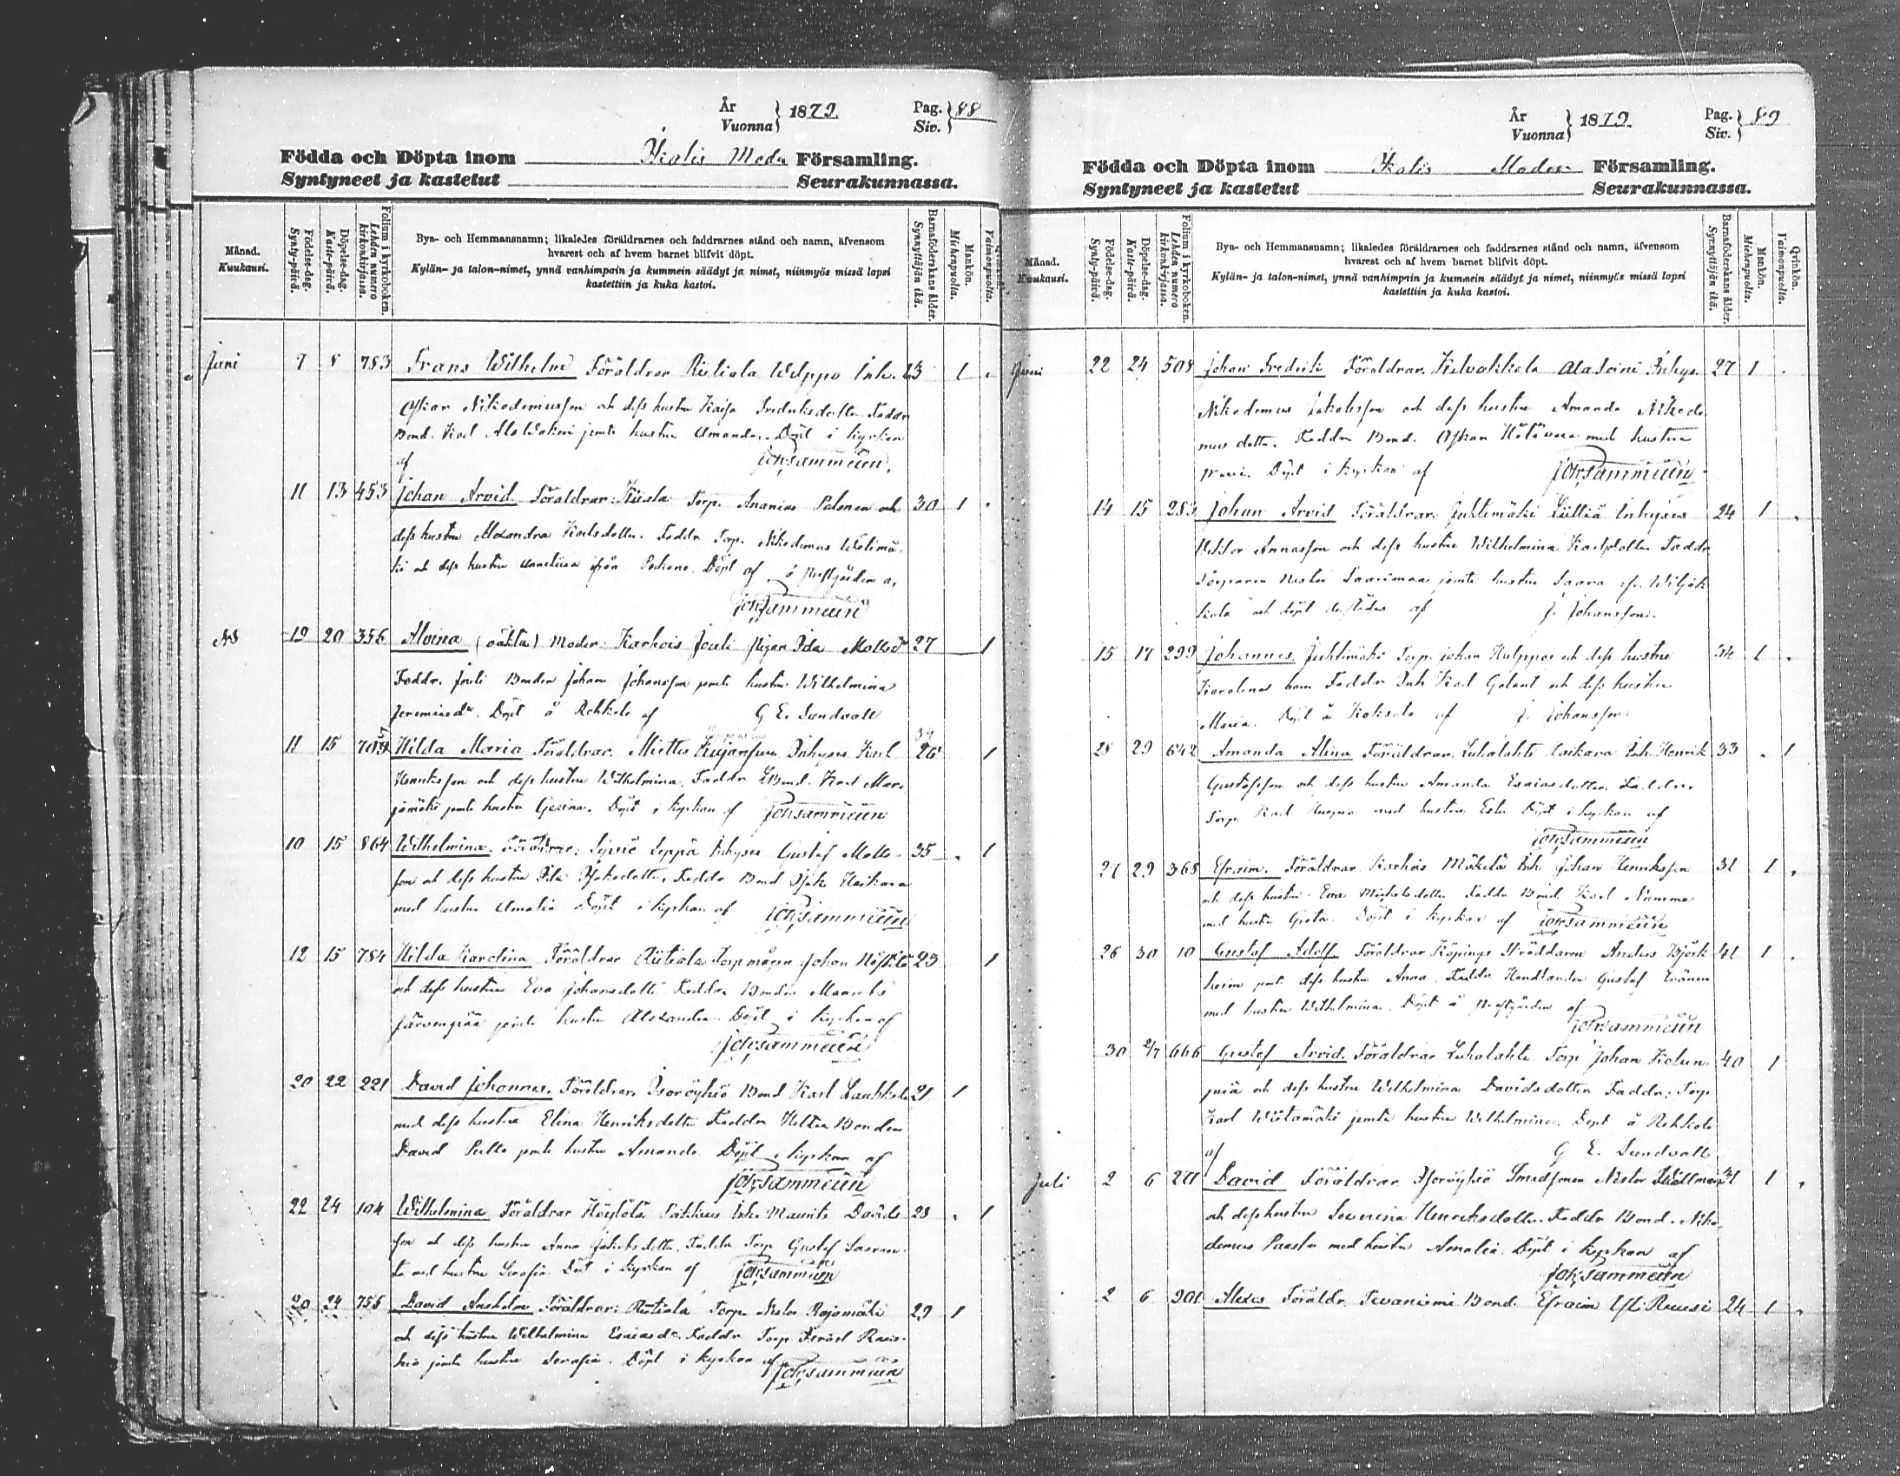 År
Vuonna } 1879. Pag. Siv. } 88
Födda och Döpta inom Ikalis Moder Församling.
Syntyneet ja kastetut Seurakunnassa.
Månad. Kuukausi.
Födelse-dag. Synty-päivä.
Döpelse-dag. Kaste-päivä.
Folium i kyrkoboken. Lehden numero kirkonkirjassa.
Bya- och Hemmansnamn; likaledes föräldrarnes och faddrarnes stånd och namn, äfvensom
hvarest och af hvem barnet blifvit döpt.
Kylän- ja talon-nimet, ynnä vanhimpain ja kummein säädyt ja nimet, niinmyös missä lapsi
kastettiin ja kuka kastoi.
Barnaföderskans ålder. Synnyttäjän ikä.
Mankön. Miehenpuolta.
Vaimonpuolta.
Juni 7 8 783 Frans Wilhelm Föräldrar Riitiala Wilppo Inh. 23 1
Oskar Nikodemusson och dess hustru Kaisa Fredriksdotter Faddr
Bond. Karl Ala jemte hustru Amanda. Döpt i kyrkan
af Joh. Sammelin.
11 13 453 Johan Arvid Föräldrar: Torp. Ananias Palonen och 30 1
dess hustru Alexandra Karlsdotter. Faddr Torp. Nikodemus
och dess hustru från Parkano. Döpt af å prestgården a.
Joh. Sammelin
19 20 356 Alvina (oäkta) Moder: Karhois Jouli Pigan Ida 27 1
Faddr. Jouli Bonden Johan Johansson jemte hustru Wilhelmina
Jeremiasdr. Döpt å Rehkola af G E. Sundvall
11 15 Hilda Maria Föräldrar. Miettis Inhyses Karl 26 1
Henriksson och dess hustru Wilhelmina. Faddr Bond. Karl Mar-
jomäki jemte hustru Gesina. Döpt i kyrkan af Joh. Sammelin
10 15 864 Wilhelmina. Föräldrar: Seppä Inhyses Gustaf Matts- 35 1
son och dess hustru Ida Isaksdotter, Faddr Bond Isak Haikara
med hustru Amalia Döpt i kyrkan af Joh. Sammelin
12 15 784 Hilda Karolina Föräldrar Riitiala Torpmågen Johan 23 1
och dess hustru Eva Johansdotter Faddr Bonden Maurits
Järvenpää jemte hustru Alexandra Döpt i kyrkan af
Joh. Sammelin
20 22 221 David Johannes. Föräldrar. Isoröyhiö Bond Karl 21 1
med dess hustru Elina Henriksdotter Faddr Bonden
David jemte hustru Amanda. Döpt i kyrkan af
Joh. Sammelin
22 24 104 Wilhelmina Föräldrar Höytölä Inh. Maurits Davids- 23 1
son och dess hustru Anna Jakobsdotter. Faddr Torp Gustaf
med hustru Serafia Döpt i kyrkan af Joh. Sammelin
20 24 755 David Anshelm Föräldrar: Riitiala Torp. Nestor Rajamäki 29 1
och dess hustru Wilhelmina Esaiasdr. Faddr Torp
jemte hustru Serafia. Döpt i kyrkan af Joh. Sammelin
År
Vuonna } 1879. Pag. Siv. } 89
Födda och Döpta inom Ikalis Moder Församling.
Syntyneet ja kastetut Seurakunnassa.
Månad. Kuukausi.
Födelse-dag. Synty-päivä.
Döpelse-dag. Kaste-päivä.
Folium i kyrkoboken. Lehden numero kirkonkirjassa.
Bya- och Hemmansnamn; likaledes föräldrarnes och faddrarnes stånd och namn, äfvensom
hvarest och af hvem barnet blifvit döpt.
Kylän- ja talon-nimet, ynnä vanhimpain ja kummein säädyt ja nimet, niinmyös missä lapsi
kastettiin ja kuka kastoi.
Barnaföderskans ålder. Synnyttäjän ikä.
Mankön. Miehenpuolta.
Qvinkön. Vaimonpuolta.
Juni 22 24 508 Johan Fredrik Föräldrar. Kilvakkala Inhys. 27 1
Nikodemus Jakobsson och dess hustru Amanda Nikode-
mus dotter. Faddr Bond. Oskar med hustru
Döpt i kyrkan af Joh. Sammelin
14 15 283 Johan Arvid Föräldrar. Juhtimäki Inhyses 24 1
Viktor Annasson och dess hustru Wilhelmina Karlsdotter Faddr
Torparen Nestor Saarimaa jemte hustru Saara
och döpt af J. Johansson.
15 17 299 Johannes, Juhtimäki Torp. Johan och dess hustru 34 1
Karolinas barn Faddr Inh Karl och dess hustru
Maria. Döpt å af J. Johansson.
28 29 642 Amanda Alina Föräldrar. Luhalahti Haikara Inh. Henrik 33 1
Gustafsson och dess hustru Amanda Esaiasdotter. Faddr.
Torp Karl med hustru Döpt i kyrkan af
Joh. Sammelin
27 29 368 Efraim. Föräldrar Karhois Mäkelä Inh. Johan Henriksson 31 1
och dess hustru Eva Michelsdotter Faddr Bond. Karl
med hustru Greta. Döpt i kyrkan af Joh. Sammelin
26 30 10 Gustaf Adolf Föräldrar Köpings Skräddaren Anders Björk- 41 1
heim jemte dess hustru Anna. Faddr Handlanden Gustaf
med hustru Wilhelmina. Döpt å Prestgården af
Joh. Sammelin
30 2/7 666 Gustaf Arvid. Föräldrar Luhalahti Torp Johan 40 1
och dess hustru Wilhelmina Davidsdotter Faddr: Torp
Karl jemte hustru Wilhelmina. Döpt å Rehkola
af G E. Sundvall
Juli 2 6 David Föräldrar. Isoröyhiö Smedsonen Nestor 1
och dess hustru Severina Henriksdotter. Faddr Bond. Niko-
demus med hustru Amalia. Döpt i kyrkan af
Joh. Sammelin
2 6 901 Alexis Föräldr. Tevaniemi Bond. Efraim Yli Ruusi 24 1